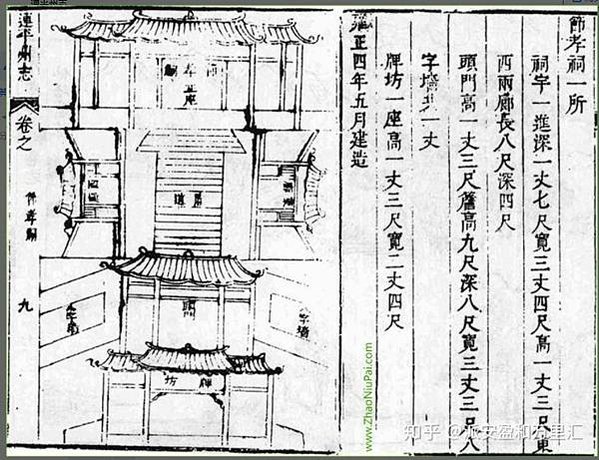 節孝祠一所
祠宇一進深一丈七尺寬三丈四尺高一丈三尺東
西兩廊長八尺深四尺
頭門高一丈三尺簷高九尺深八尺寬三丈三尺八
字墻一丈
牌坊一座高一丈三尺寬二丈四尺
雍正四年五月建造
孝祠正座
甬道
頭
字墻
牌坊
連平州志
卷之
節孝祠
九
www.ZhaoNiuPai.com
知乎